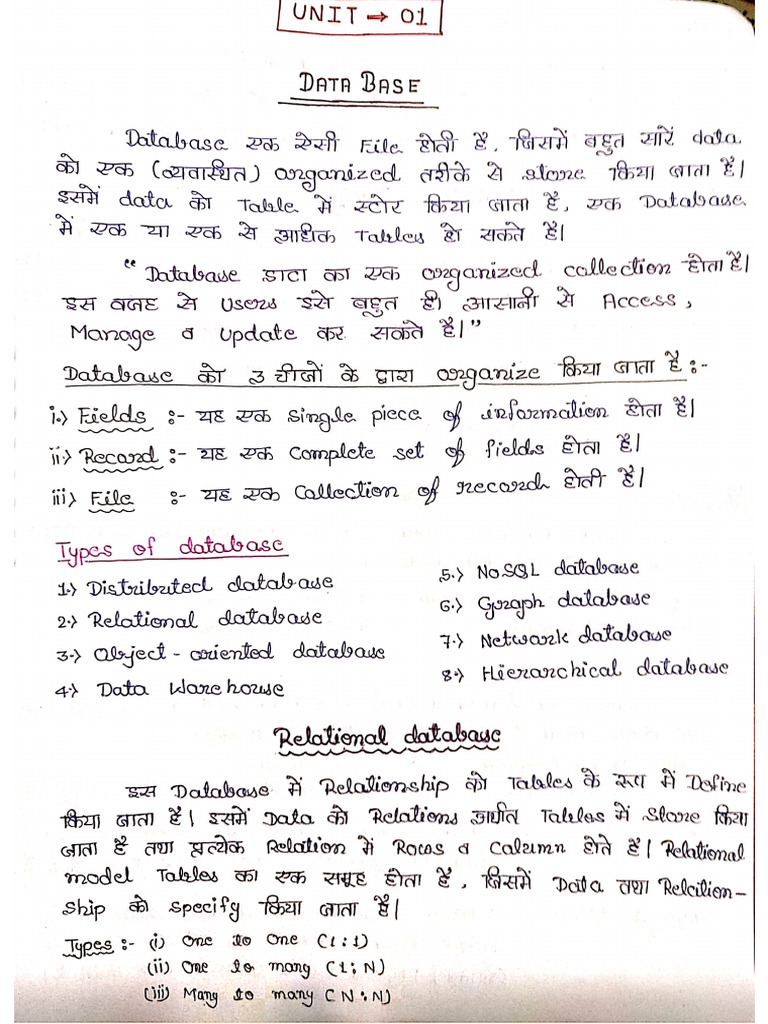 UNIT → 01
DATA BASE
Database एक ऐसी File होती है, जिसमें बहुत सारें data
को एक (व्यवास्थित) organized तरीके से store किया जाता है।
इसमें data को Table में स्टोर किया जाता है, एक Database
में एक या एक से अधिक Tables हो सकते है।
“Database डाटा का एक organized collection होता है।
इस वजह से Users इसे बहुत ही आसानी से Access,
Manage व Update कर सकते है।”
Database को 3 चीजों के द्वारा organize किया जाता है :-
i.) Fields :- यह एक single piece of information होता है।
ii) Record :- यह एक Complete set of fields होता है।
iii) File :- यह एक Collection of records होती है।
Types of database
1.) Distributed database
2.) Relational database
3.) Object-oriented database
4.) Data Warehouse
5.) NoSQL database
6.) Graph database
7.) Network database
8.) Hierarchical database
Relational database
इस Database में Relationship को Tables के रूप में Define
किया जाता है। इसमें Data को Relations अर्थात Tables में Store किया
जाता है तथा प्रत्येक Relation में Rows व Column होते है। Relational
model Tables का एक समूह होता है, जिसमें Data तथा Relation-
ship को specify किया जाता है।
Types :- (i) One to One (1:1)
(ii) One to many (1:N)
(iii) Many to many (N:N)